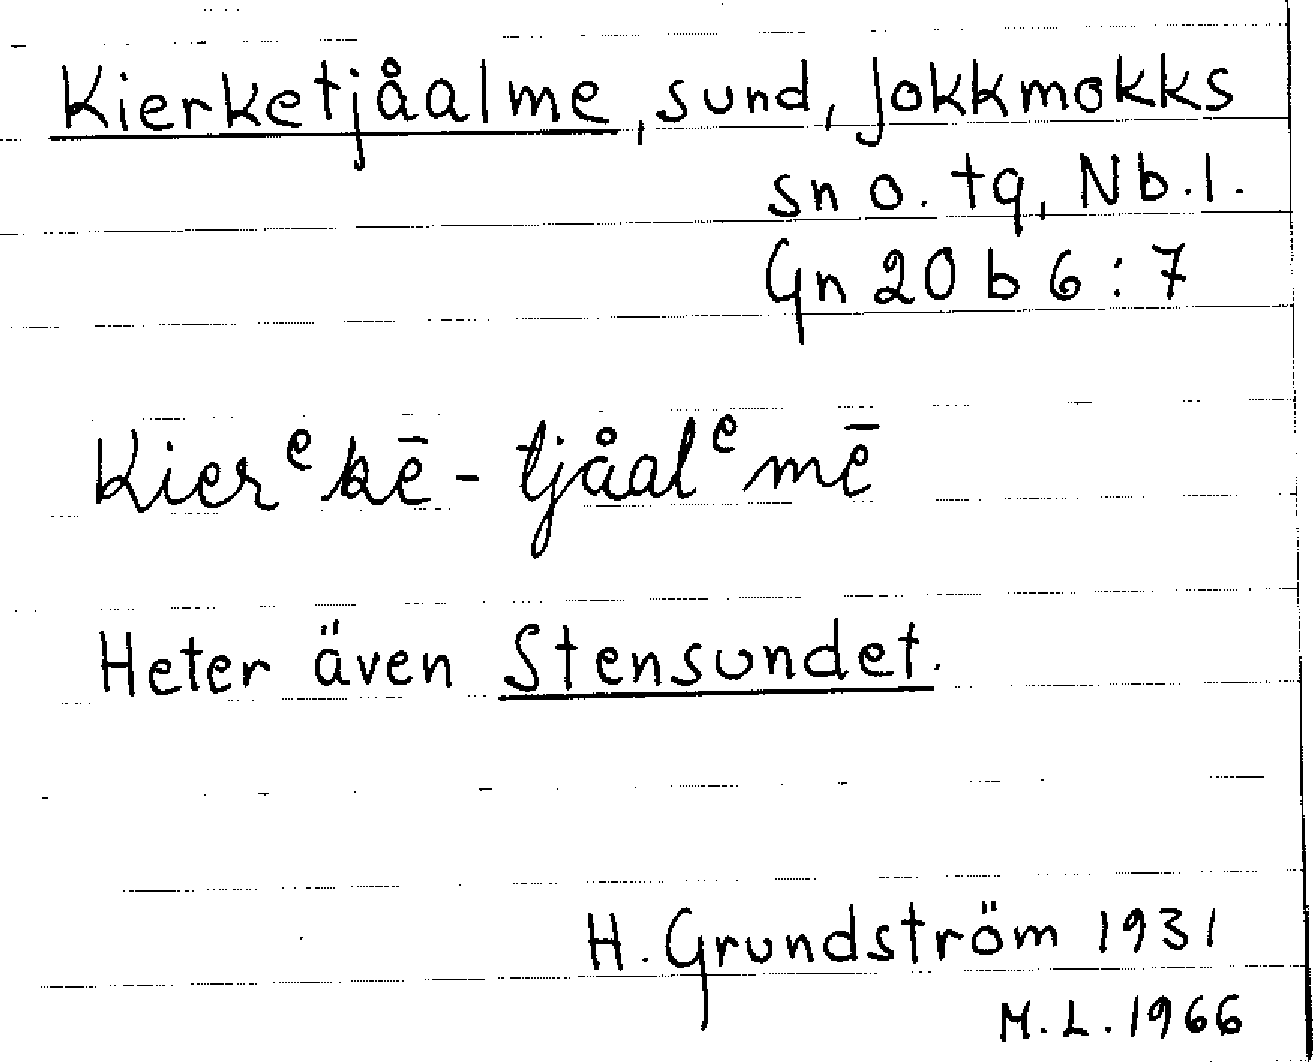 Kierketjåalme, sund, Jokkmokks
sn o. tg, Nb.l.
Gn 20 b 6:7
Kierᵉkē-tjåalᵉmē
Heter även Stensundet.
H. Grundström 1931
M.L. 1966